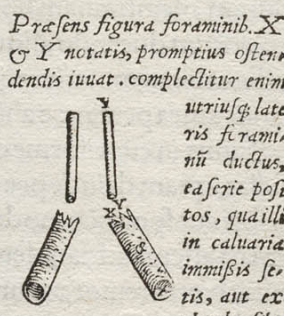 Præsens figura foraminib. X
& Y notatis, promptius osten-
dendis iuuat. complectitur enim
Y
utriusq; late
ris forami-
nũ ductus,
ea serie posi
tos, qua illi
X Y
in caluaria
immißis se-
tis, aut ex